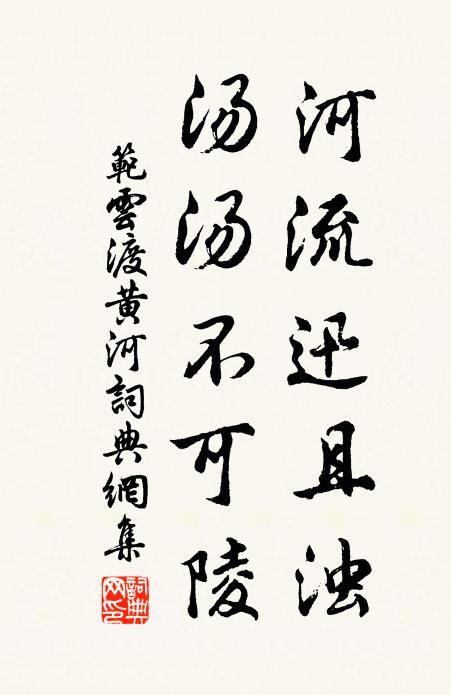 河流迅且浊
汤汤不可陵
範雲渡黄河詞典網集
詞典网印